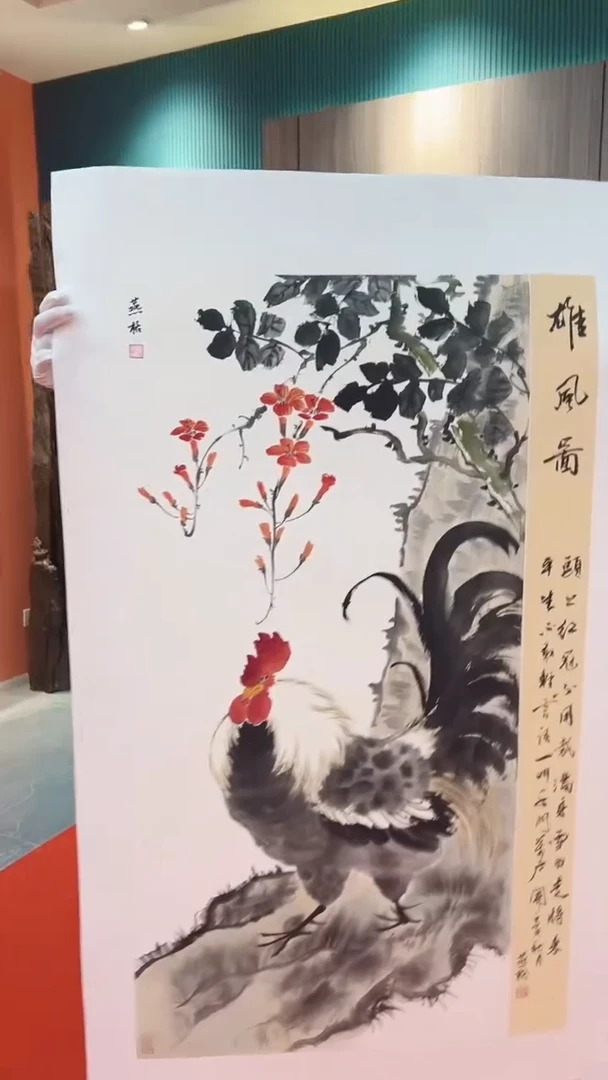 雄風圖
頭上紅冠不用裁滿身雪白走將來
平生不敢輕言語一叫千門萬户開
秋月
燕
燕